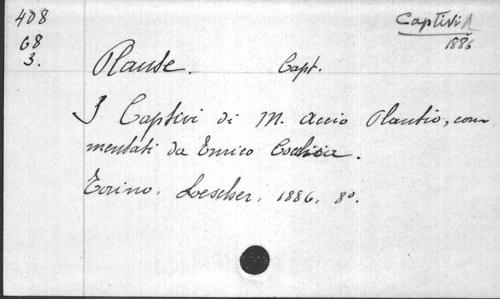 408
68
3.
Captivi
1886
Plaute. Capt.
I Captivi di M. Accio Plautio, com
mentati da Enrico Cocchia.
Torino, Loescher, 1886, 8º.